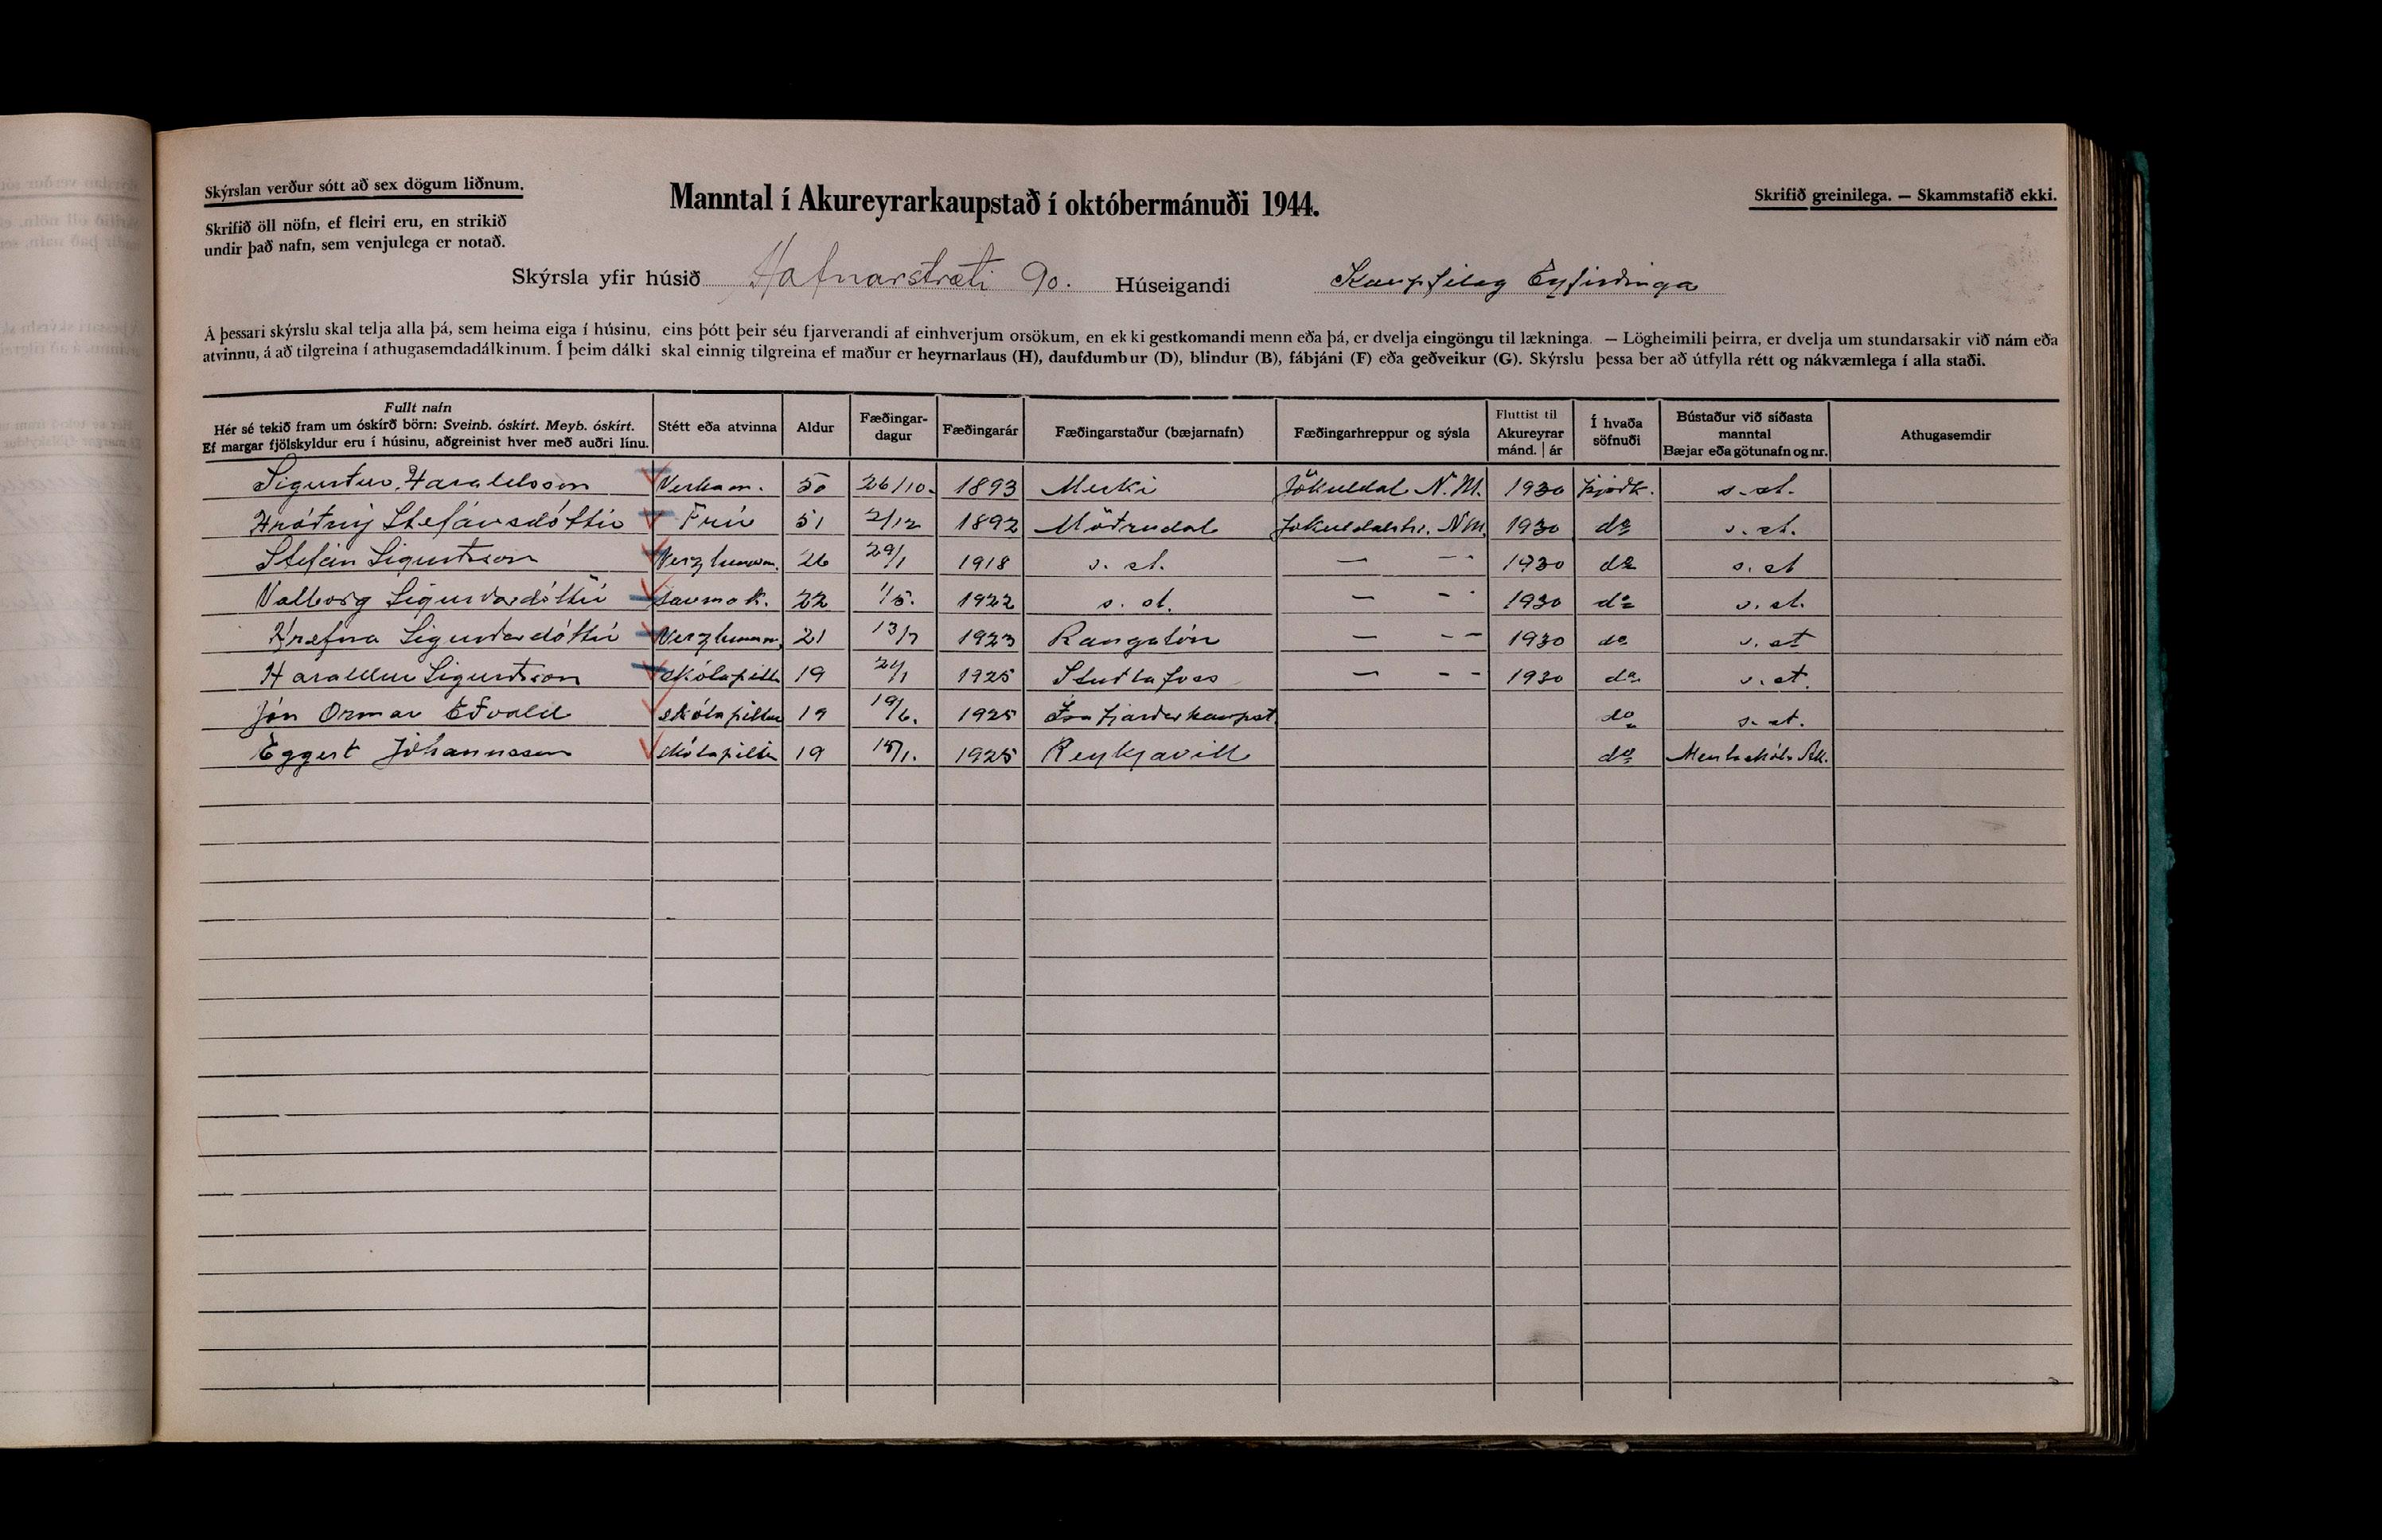 Skýrslan verður sótt að sex dögum liðnum.
Manntal í Akureyrarkaupstað í októbermánuði 1944.
Skrifið greinilega. — Skammstafið ekki.
Skrifið öll nöfn, ef fleiri eru, en strikið
undir það nafn, sem venjulega er notað.
Skýrsla yfir húsið Hafnarstræti 90. Húseigandi Kaupfélag Eyfirðinga
Á þessari skýrslu skal telja alla þá, sem heima eiga í húsinu, eins þótt þeir séu fjarverandi af einhverjum orsökum, en ekki gestkomandi menn eða þá, er dvelja eingöngu til lækninga. — Lögheimili þeirra, er dvelja um stundarsakir við nám eða
atvinnu, á að tilgreina í athugasemdadálkinum. Í þeim dálki skal einnig tilgreina ef maður er heyrnarlaus (H), daufdumbur (D), blindur (B), fábjáni (F) eða geðveikur (G). Skýrslu þessa ber að útfylla rétt og nákvæmlega í alla staði.
Fullt nafn
Hér sé tekið fram um óskírð börn: Sveinb. óskírt. Meyb. óskírt.
Ef margar fjölskyldur eru í húsinu, aðgreinist hver með auðri línu.
Stétt eða atvinna
Aldur
Fæðingar-
dagur
Fæðingarár
Fæðingarstaður (bæjarnafn)
Fæðingarhreppur og sýsla
Fluttist til
Akureyrar
mánd. | ár
Í hvaða
söfnuði
Bústaður við síðasta
manntal
Bæjar eða götunafn og nr.
Athugasemdir
Sigurður Haraldsson Verkam. 50 26/10. 1893 Merki Jökuldal N.M. 1930 þjóðk. s. st.
Hróðný Stefánsdóttir Frú 51 2/12 1892 Möðrudal Jökuldalshr. N M. 1930 do s. st.
Stefán Sigurðsson Verzlunarm. 26 29/1 1918 s. st. — — - 1930 do s. st
Valborg Sigurðardóttir saumak. 22 1/5. 1922 s. st. — - - 1930 do s. st.
Hrefna Sigurðardóttir Verzlunarm. 21 13/7 1923 Rangalón — - - 1930 do s. st
Haraldur Sigurðsson skólapiltur 19 24/1 1925 Stuðlafoss — - - 1930 do s. st.
Jón Ormar Eðvald skólapiltur 19 19/6. 1925 Ísafjarðarkaupst. do s. st.
Eggert Jóhannsson skólapiltur 19 15/1. 1925 Reykjavík do Mentaskóla Ak.